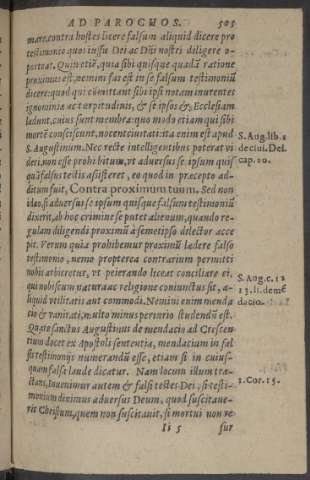 AD PAROCHOS. 505
mare, contra hostes licere falsum aliquid dicere pro
testimonio quos iussu Dei ac Dñi nostri diligere o-
porteat. Quin etiã, quia sibi quisque quadã ratione
proximus est, nemini fas est in se falsum testimoniũ
dicere: quod qui cõmittant sibi ipsi notam inurentes
ignominiæ ac turpitudinis, & se ipsos & Ecclesiam
lædunt, cuius sunt membra: quo modo etiam qui sibi
mortẽ consciscunt, nocent ciuitati: ita enim est apud
S. Augustinum. Nec recte intelligentibus poterat vi
deri, non esse prohibitum, vt aduersus se ipsum quis
quã falsus testis assisteret, eo quod in præcepto ad-
ditum fuit, Contra proximum tuum. Sed non
ideo, si aduersus se ipsum quisque falsum testimoniũ
dixerit, ab hoc crimine se putet alienum, quando re-
gulam diligendi proximũ à semetipso dilector acce
pit. Verum quia prohibemur proximũ lædere falso
testimonio, nemo propterea contrarium permitti
nobis arbitretur, vt peierando liceat conciliare ei,
qui nobiscum natura ac religione coniunctus sit, a-
liquid vtilitatis aut commodi. Nemini enim menda
cio & vanitati, multo minus periurio studendũ est.
Quare sanctus Augustinus de mendacio ad Crescen-
tium docet ex Apostoli sententia, mendacium in fal
sis testimonijs numerandũ esse, etiam si in cuius-
quam falsa laude dicatur. Nam locum illum tra-
ctans, Inuenimur autem & falsi testes Dei, si testi-
monium diximus aduersus Deum, quod suscitaue-
rit Christum, quem non suscitauit, si mortui non re
Ii 5 sur
S. Aug. lib. 1
de ciui. Dei.
cap. 20.
S. Aug. c. 12
13. li. de mẽ
dacio.
1. Cor. 15.